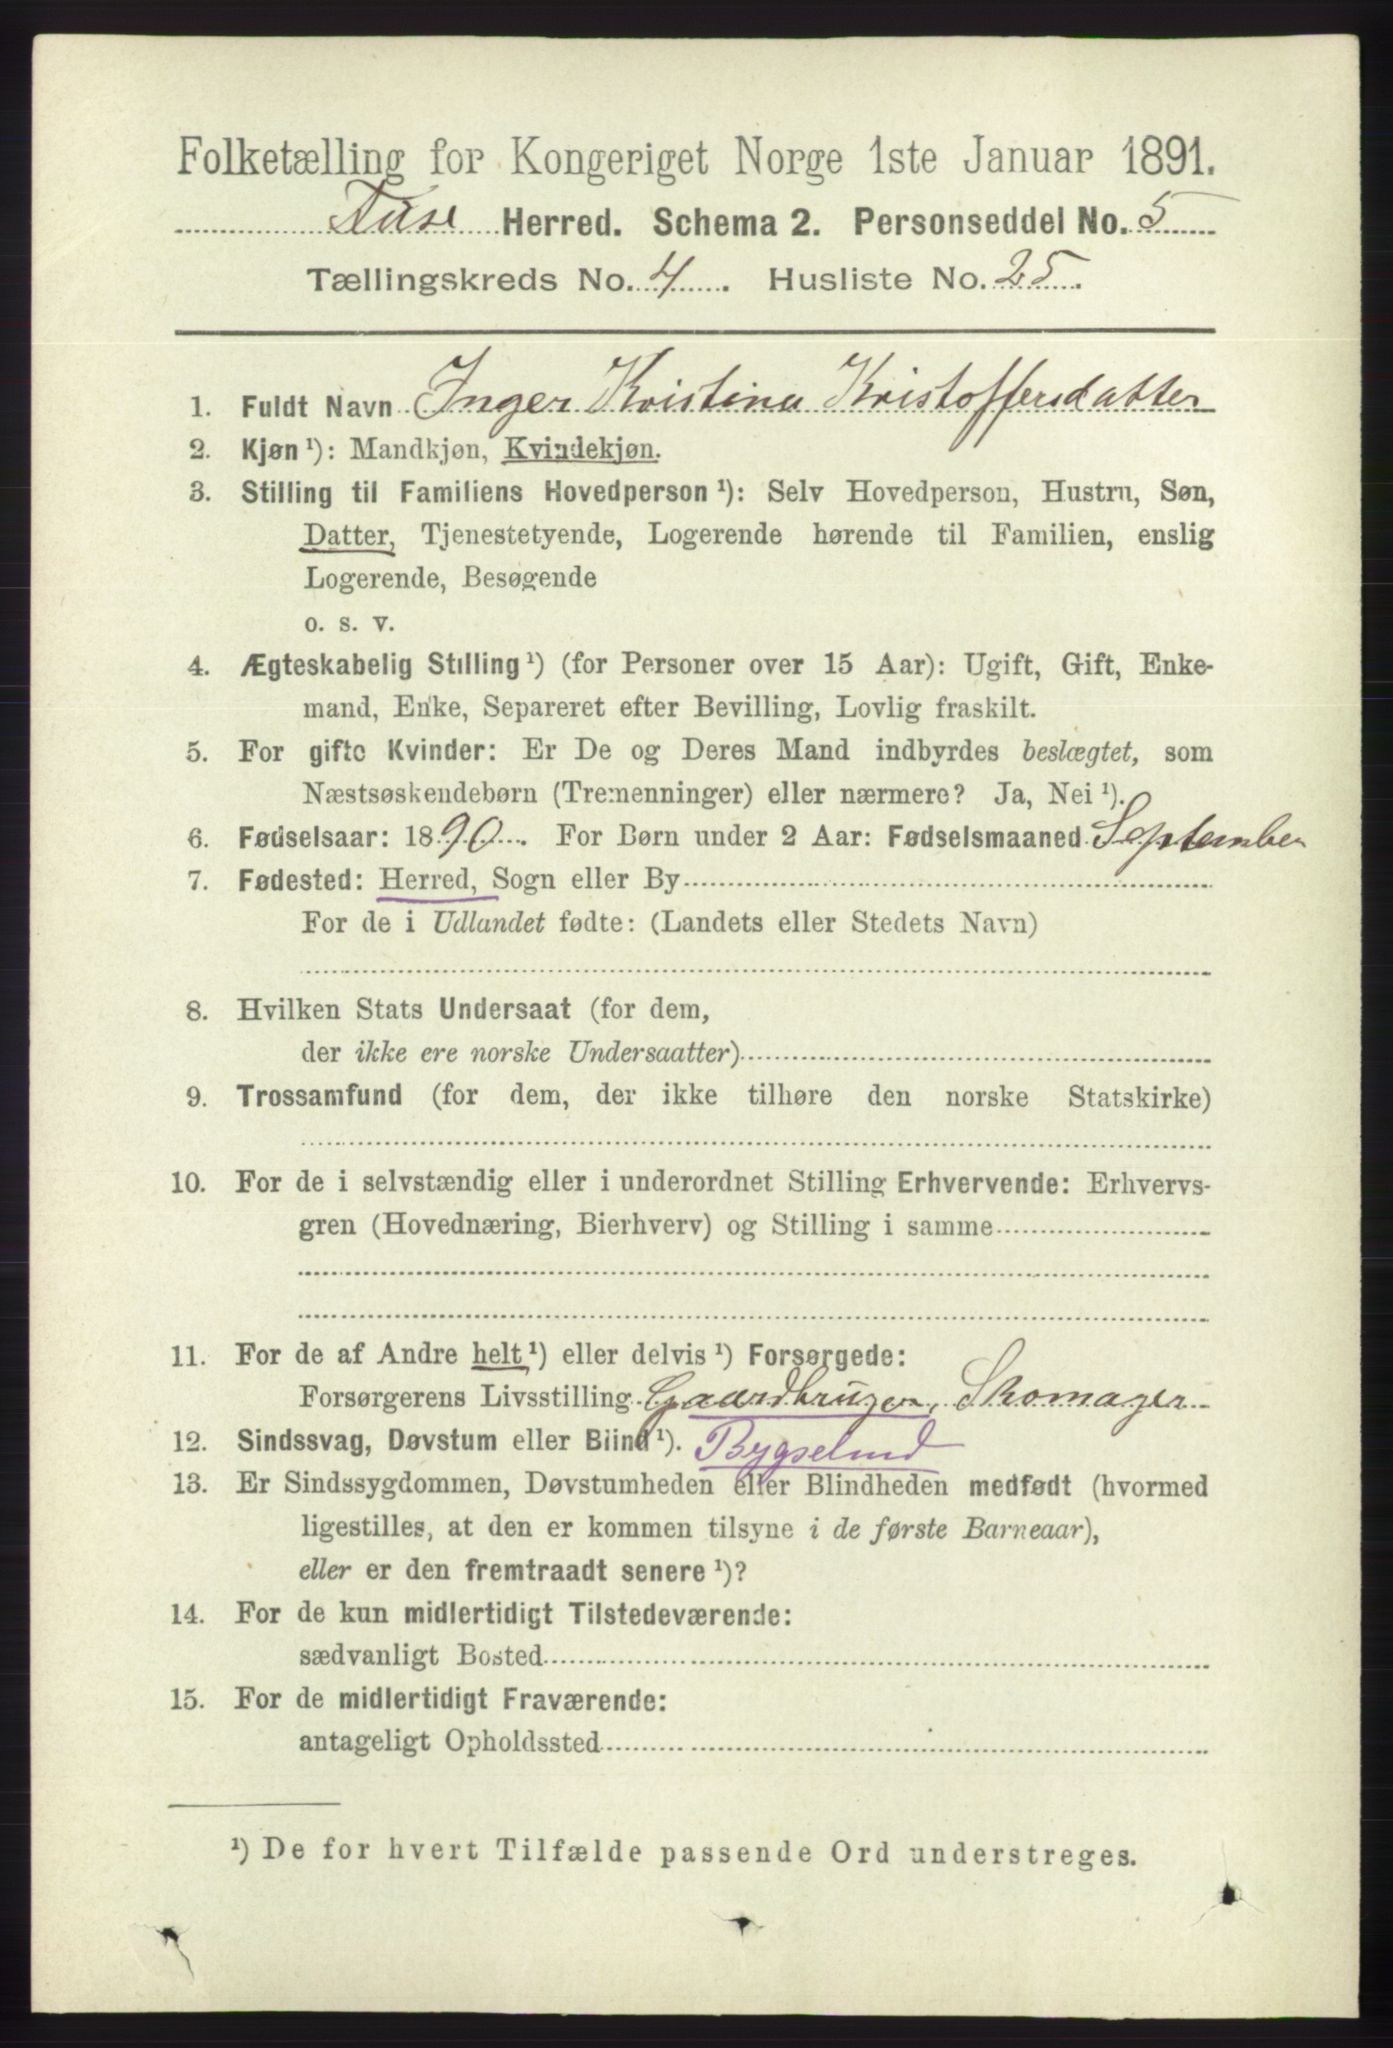 Folketælling for Kongeriget Norge 1ste Januar 1891.
Fuse Herred. Schema 2. Personseddel No. 5
Tællingskreds No. 4. Husliste No. 25.
1. Fuldt Navn Inger Kristina Kristoffersdatter
2. Kjøn ¹): Mandkjøn, Kvindekjøn.
3. Stilling til Familiens Hovedperson ¹): Selv Hovedperson, Hustru, Søn,
Datter, Tjenestetyende, Logerende hørende til Familien, enslig
Logerende, Besøgende
o. s. v.
4. Ægteskabelig Stilling ¹) (for Personer over 15 Aar): Ugift, Gift, Enke-
mand, Enke, Separeret efter Bevilling, Lovlig fraskilt.
5. For gifte Kvinder: Er De og Deres Mand indbyrdes beslægtet, som
Næstsøskendebørn (Tremenninger) eller nærmere? Ja, Nei ¹).
6. Fødselsaar: 1890. For Børn under 2 Aar: Fødselsmaaned September
7. Fødested: Herred, Sogn eller By
For de i Udlandet fødte: (Landets eller Stedets Navn)
8. Hvilken Stats Undersaat (for dem,
der ikke ere norske Undersaatter)
9. Trossamfund (for dem, der ikke tilhøre den norske Statskirke)
10. For de i selvstændig eller i underordnet Stilling Erhvervende: Erhvervs-
gren (Hovednæring, Bierhverv) og Stilling i samme
11. For de af Andre helt ¹) eller delvis ¹) Forsørgede:
Forsørgerens Livsstilling Gaardbruger, Skomager
12. Sindssvag, Døvstum eller Blind ¹). Bygselmd
13. Er Sindssygdommen, Døvstumheden eller Blindheden medfødt (hvormed
ligestilles, at den er kommen tilsyne i de første Barneaar),
eller er den fremtraadt senere ¹)?
14. For de kun midlertidigt Tilstedeværende:
sædvanligt Bosted
15. For de midlertidigt Fraværende:
antageligt Opholdssted
¹) De for hvert Tilfælde passende Ord understreges.